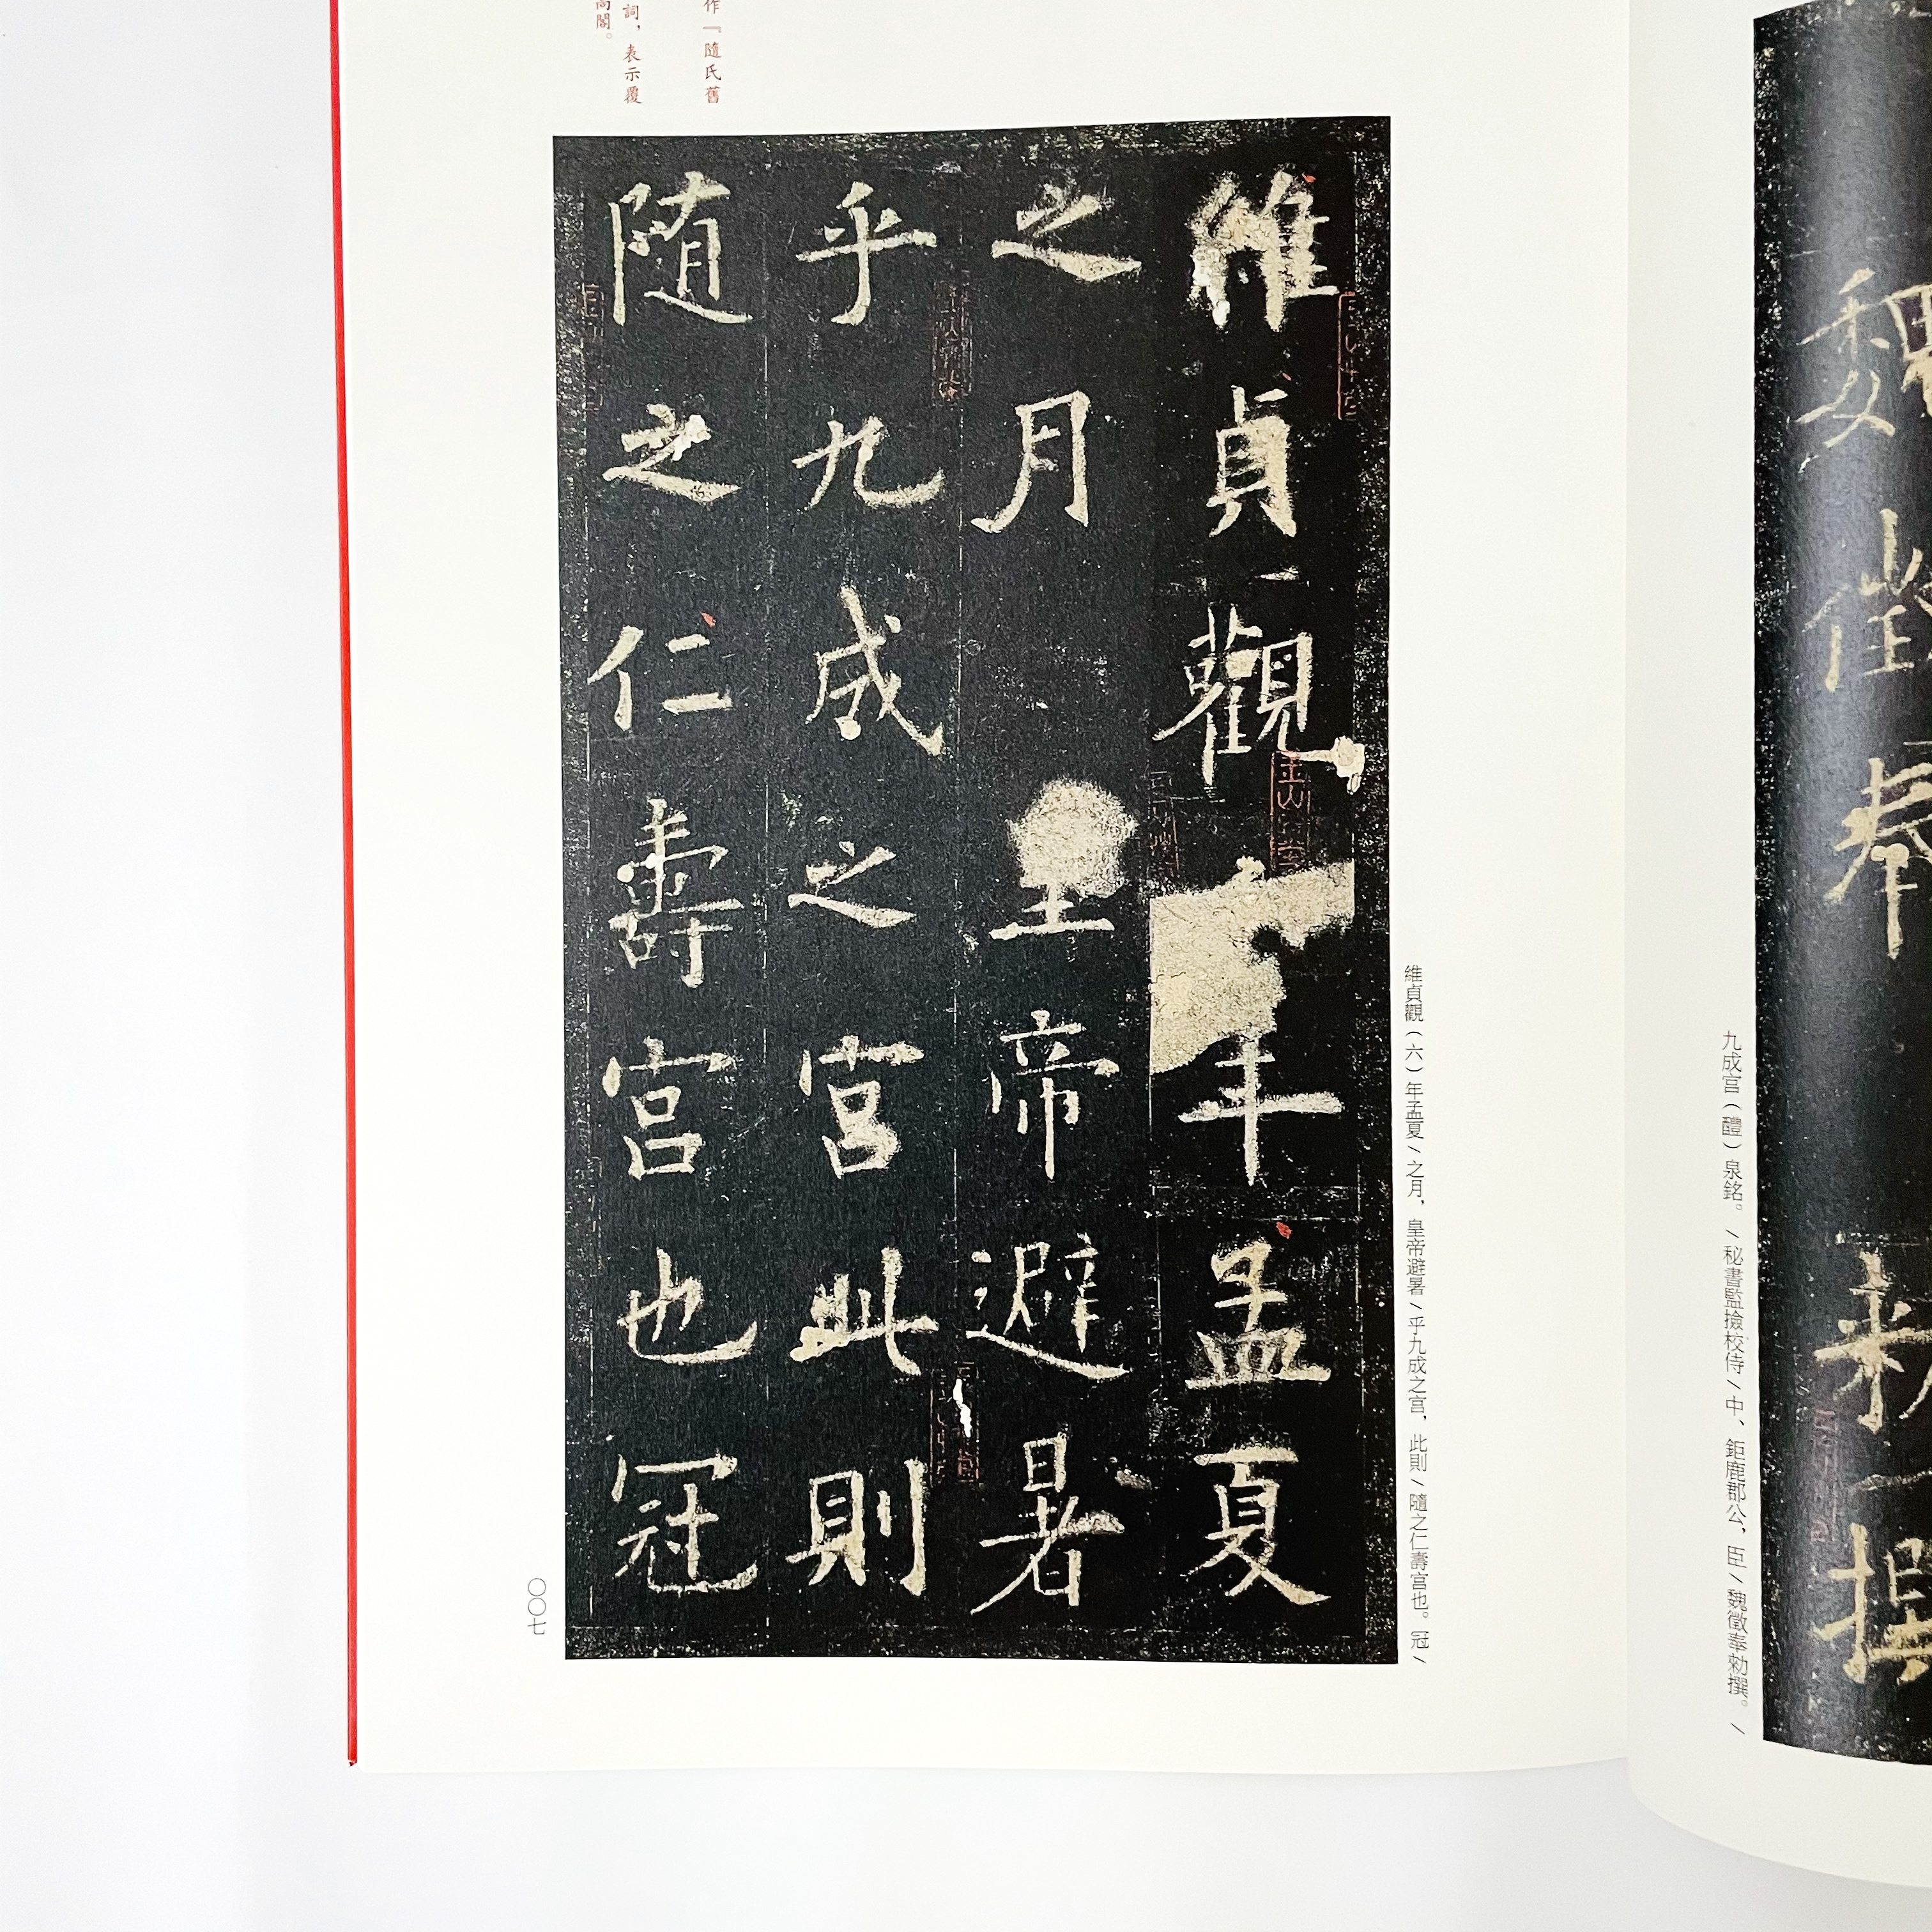 魏徵奉
勑撰
九成宮（醴）泉銘。/秘書監撿校侍/中、鉅鹿郡公，臣/魏徵奉勑撰。/
維貞觀（六）年孟夏/之月，皇帝避暑/乎九成之宮，此則/隨之仁壽宮也。冠/
維貞觀年孟夏
之月皇帝避暑
乎九成之宮此則
隨之仁壽宮也冠
作『隨氏舊
詞，表示覆
高閣。
〇〇七